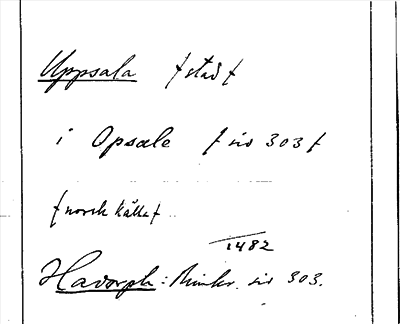 Uppsala [stad]
i Opsale [sid 303]
[norsk källa]
1482
Havorph: Rimkr. sid 303.